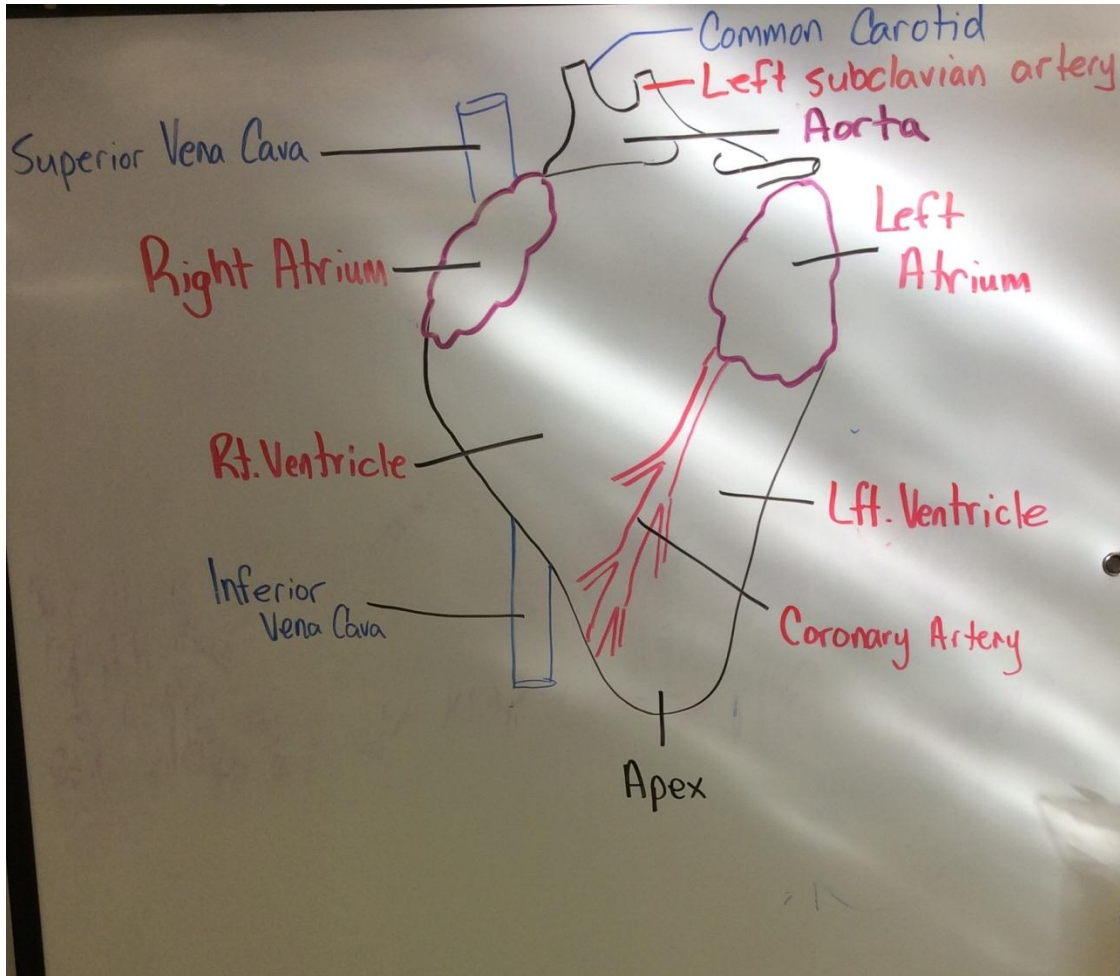 Common Carotid
Left subclavian artery
Aorta
Superior Vena Cava
Left
Atrium
Right Atrium
Rt. Ventricle
Lft. Ventricle
Inferior
Vena Cava
Coronary Artery
Apex